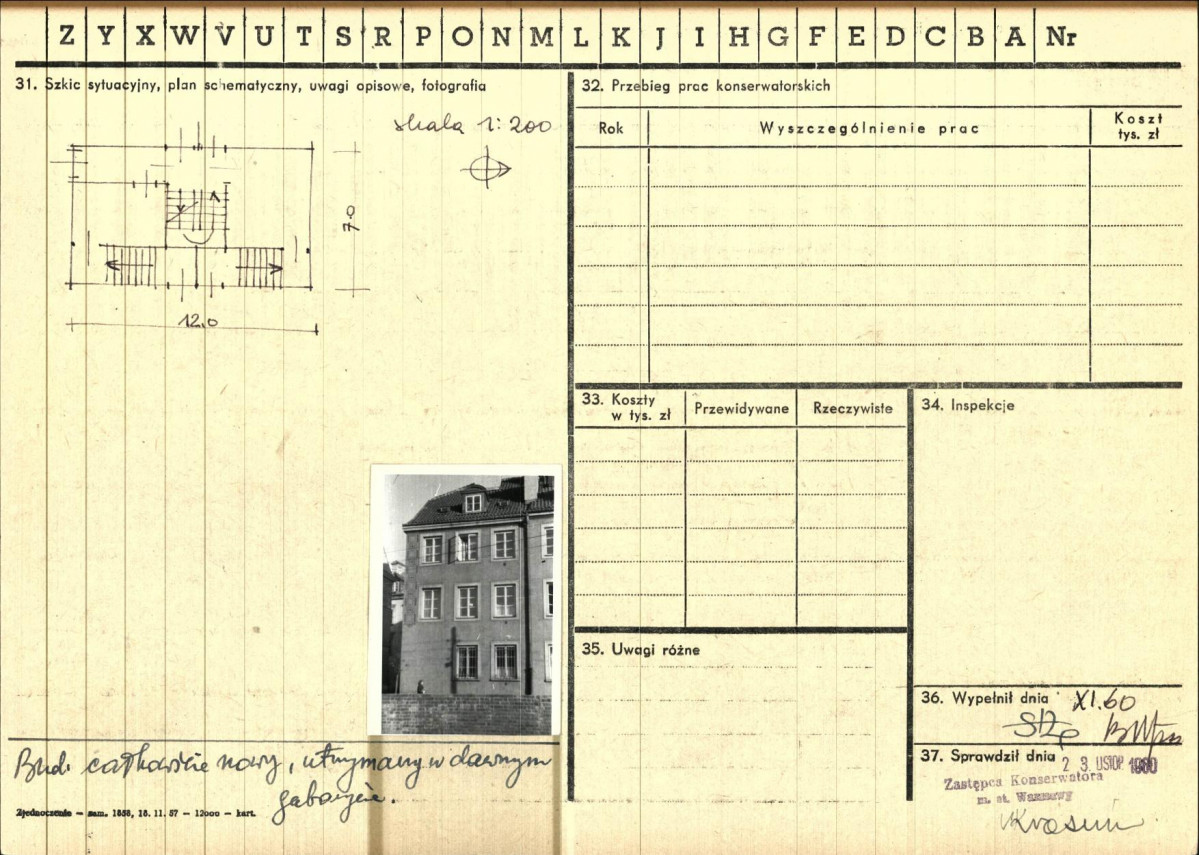 Z Y X W V U T S R P O N M L K J I H G F E D C B A Nr
31. Szkic sytuacyjny, plan schematyczny, uwagi opisowe, fotografia
skala 1:200
7.0
12.0
Bud. całkowicie nowy, utrzymany w dawnym
gabarycie.
Zjednoczenie — zam. 1858, 18. 11. 57 — 12000 — kart.
32. Przebieg prac konserwatorskich
Rok Wyszczególnienie prac Koszt
tys. zł
33. Koszty
w tys. zł Przewidywane Rzeczywiste
34. Inspekcje
35. Uwagi różne
36. Wypełnił dnia XI.60
37. Sprawdził dnia 2 3. LISTOP 1960
Zastępca Konserwatora
m. st. Warszawy